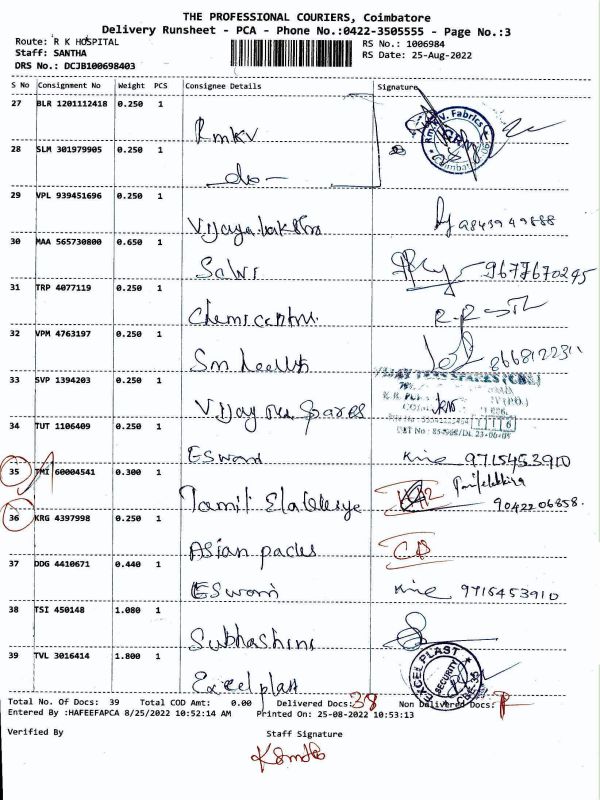 THE PROFESSIONAL COURIERS, Coimbatore
Delivery Runsheet - PCA - Phone No.:0422-3505555 - Page No.:3
Route: R K HOSPITAL RS No.: 1006984
Staff: SANTHA RS Date: 25-Aug-2022
DRS No.: DCJB100698403
S No Consignment No Weight PCS Consignee Details Signature
27 BLR 1201112418 0.250 1
Rmkv
28 SLM 301979905 0.250 1
-do-
29 VPL 939451696 0.250 1
Vijaya 9843949888
30 MAA 565730800 0.650 1
9677670245
31 TRP 4077119 0.250 1
32 VPM 4763197 0.250 1
33 SVP 1394203 0.250 1
Spares
34 TUT 1106409 0.250 1
ESwari 9715453910
35 TMI 60004541 0.300 1
Tamil 9042206858.
36 KRG 4397998 0.250 1
Asian packs CD
37 DDG 4410671 0.440 1
ESwari 9715453910
38 TSI 450148 1.080 1
Subhashini
39 TVL 3016414 1.800 1
EXCEL PLAST SECURITY
Excel plast
Total No. Of Docs: 39 Total COD Amt: 0.00 Delivered Docs: 38 Non Delivered Docs:
Entered By :HAFEEFAPCA 8/25/2022 10:52:14 AM Printed On: 25-08-2022 10:53:13
Verified By Staff Signature